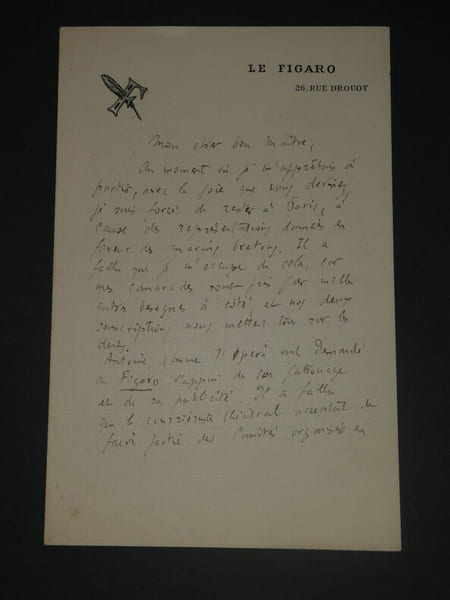 LE FIGARO
26, RUE DROUOT
Mon cher bon Maître,
Au moment où je m'apprêtais à
partir, avec la joie que vous
je suis forcé de rester à Paris, à
cause des représentations données en
faveur des marins bretons. Il a
fallu que je m'occupe de cela, car
mes camarades sont pris par mille
autres besognes à côté et nos deux
souscriptions nous mettent tous sur les
dents.
Antoine, comme l'Opéra ont demandé
au Figaro l'appui de son patronage
et de sa publicité. Il a fallu
que le théâtral acceptât de
faire partie des Comités organisés en